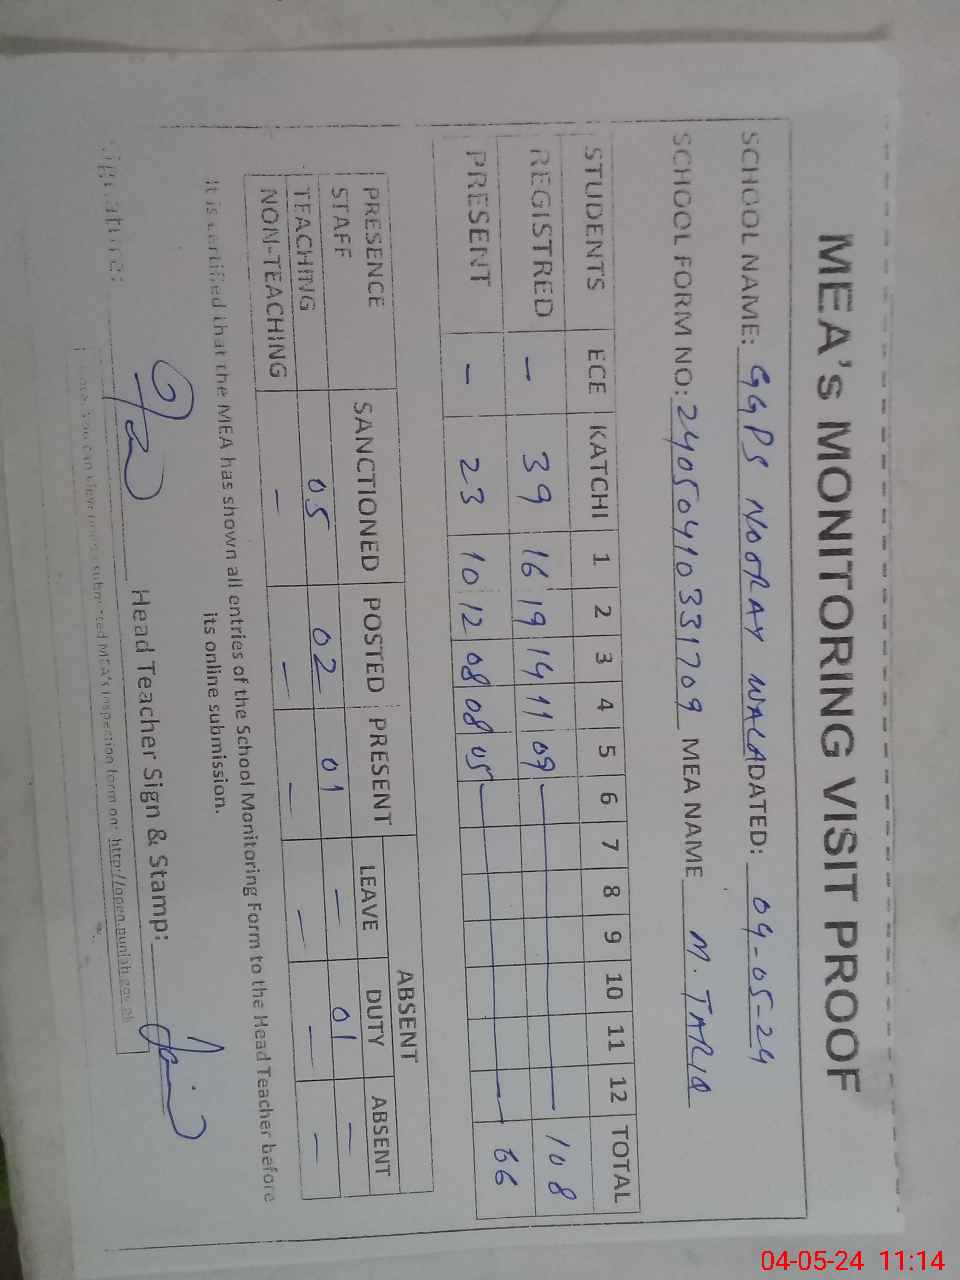 MEA's MONITORING VISIT PROOF
SCHOOL NAME: GGPS NOORAY WALA DATED: 04-05-24
SCHOOL FORM NO: 24050410331709 MEA NAME M. TARIQ
STUDENTS ECE KATCHI 1 2 3 4 5 6 7 8 9 10 11 12 TOTAL
REGISTRED - 39 16 19 14 11 09 108
PRESENT - 23 10 12 08 08 05 66
PRESENCE SANCTIONED POSTED PRESENT ABSENT
STAFF LEAVE DUTY ABSENT
TEACHING 05 02 01 - 01 -
NON-TEACHING - - - - - -
It is certified that the MEA has shown all entries of the School Monitoring Form to the Head Teacher before
its online submission.
Signature: Head Teacher Sign & Stamp:
You can view submitted MEA's inspection form on: http://open.punjab.gov.pk
04-05-24 11:14